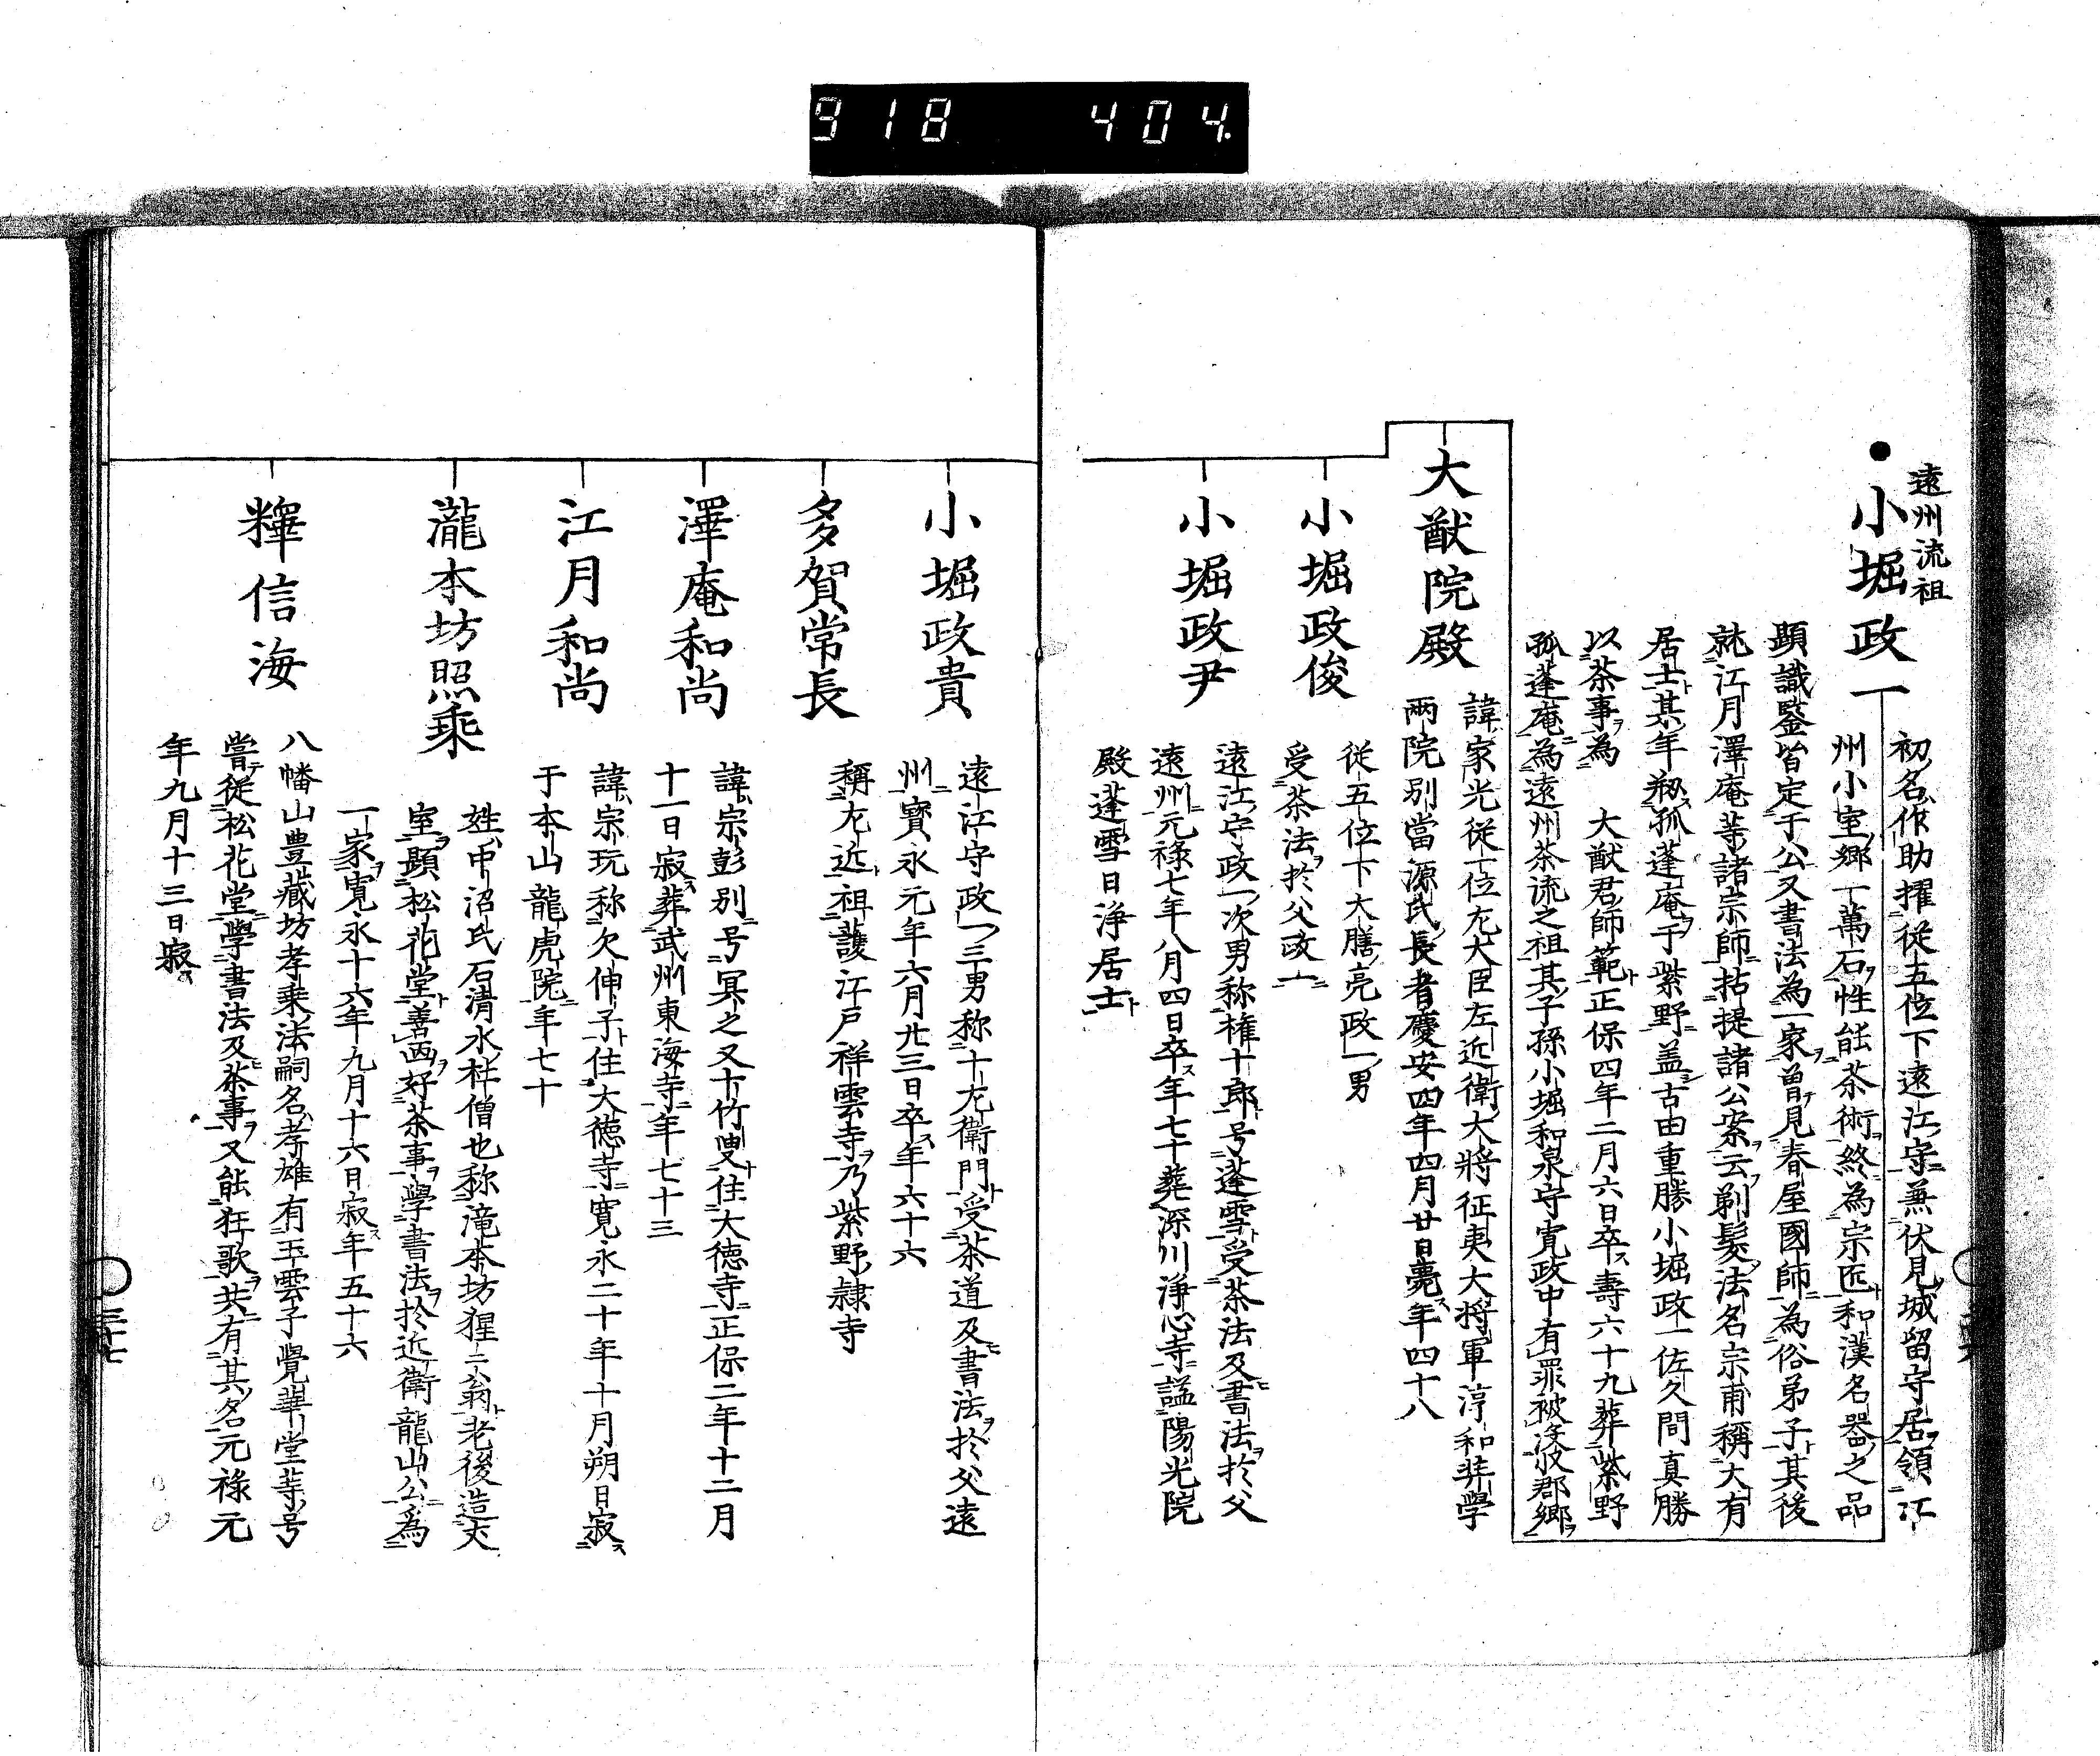 918 404
遠州流祖
●小堀政一
初名作助擢従五位下遠江守兼伏見城留守居領江
州小室郷一萬石性能茶術終為宗匠和漢名器之品
顕識鑒皆定于公又書法為一家曽見春屋國師為俗弟子其後
就江月澤庵等諸宗師拈提諸公案云剃髮法名宗甫稱大有
居士其年剏孤蓬庵于紫野盖古田重勝小堀政一佐久間真勝
以茶事為 大猷君師範正保四年二月六日卒壽六十九葬紫野
孤蓬庵為遠州茶流之祖其子孫小堀和泉守寛政中有罪被没收郡郷
大猷院殿
諱家光従一位左大臣左近衛大將征夷大将軍淳和奘學
兩院別當源氏長者慶安四年四月廿日薨年四十八
小堀政俊
従五位下大膳亮政一男
受茶法於父政一
小堀政尹
遠江守政一次男称権十郎号蓬雪受茶法及書法於父
遠州元祿七年八月四日卒年七十葬深川淨心寺謚陽光院
殿蓬雪日淨居士
小堀政貴
遠江守政一三男称十左衛門受茶道及書法於父遠
州寳永元年六月廿三日卒年六十六
多賀常長
稱左近祖護江戸祥雲寺乃紫野隷寺
澤庵和尚
諱宗彭別号冥之又十竹叟住大德寺正保二年十二月
十一日寂葬武州東海寺年七十三
江月和尚
諱宗玩称欠伸子住大德寺寛永二十年十月朔日寂
于本山龍虎院年七十
瀧本坊照乘
姓中沼氏石清水社僧也称滝本坊猩々翁老後造丈
室顕松花堂善画好茶事學書法於近衛龍山公為
一家寛永十六年九月十六日寂年五十六
釋信海
八幡山豊蔵坊孝乗法嗣名孝雄有玉雲子覺華堂等号
嘗従松花堂學書法及茶事又能狂歌共有其名元祿元
年九月十三日寂